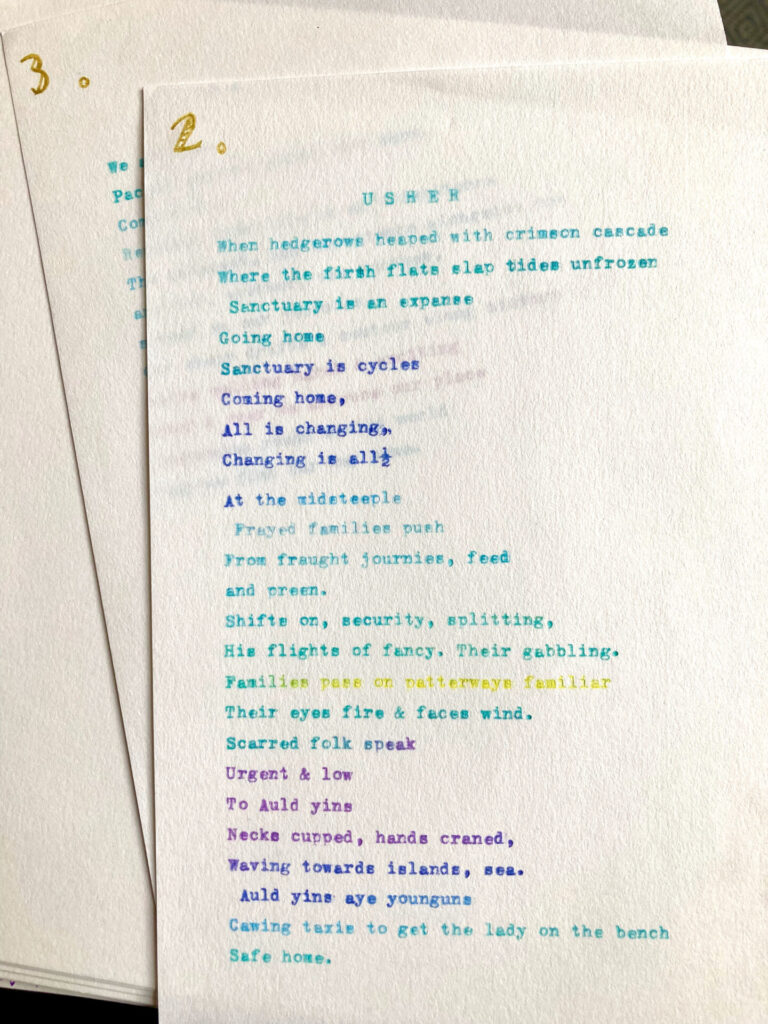 3.
2.
We
Pac
Con
Re
Th
a
U S H E R
When hedgerows heaped with crimson cascade
Where the firth flats slap tides unfrozen
Sanctuary is an expanse
Going home
Sanctuary is cycles
Coming home,
All is changing,,
Changing is all½
At the midsteeple
Frayed families push
From fraught journies, feed
and preen.
Shifts on, security, splitting,
His flights of fancy. Their gabbling.
Families pass on patterways familiar
Their eyes fire & faces wind.
Scarred folk speak
Urgent & low
To Auld yins
Necks cupped, hands craned,
Waving towards islands, sea.
Auld yins aye younguns
Cawing taxis to get the lady on the bench
Safe home.